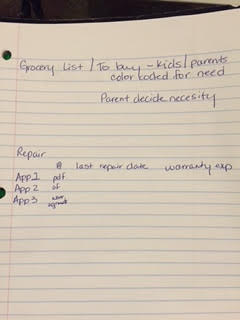 Grocery List / To buy - kids/parents
color coded for need
Parent decide necesity
Repair
@ last repair date warranty exp
App 1 pdf
App 2 of
App 3